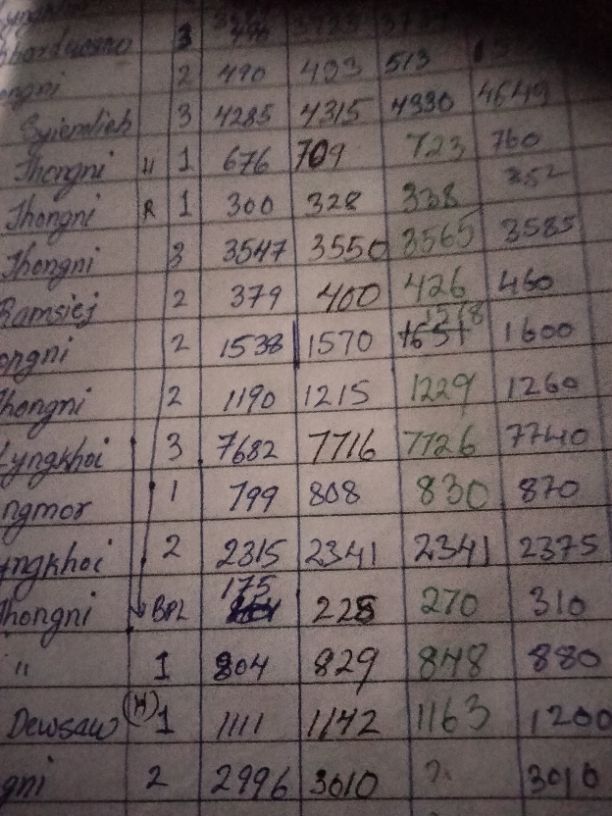 3
2 490 403 513
Syiemlieh 3 4285 4315 4330 4649
Jhongni U 1 676 709 723 760
Jhongni R 1 300 328 338 352
Jhongni 3 3547 3550 3565 3585
Ramsiej 2 379 400 426 460
ongni 2 1538 1570 1651 1268 1600
hongni 2 1190 1215 1229 1260
Lyngkhoi 3 7682 7716 7726 7740
ngmor 1 799 808 830 870
yngkhoi 2 2315 2341 2341 2375
hongni BPL 175 228 270 310
" 1 804 829 848 880
Dewsaw (H) 1 1111 1142 1163 1200
gni 2 2996 3010 3010